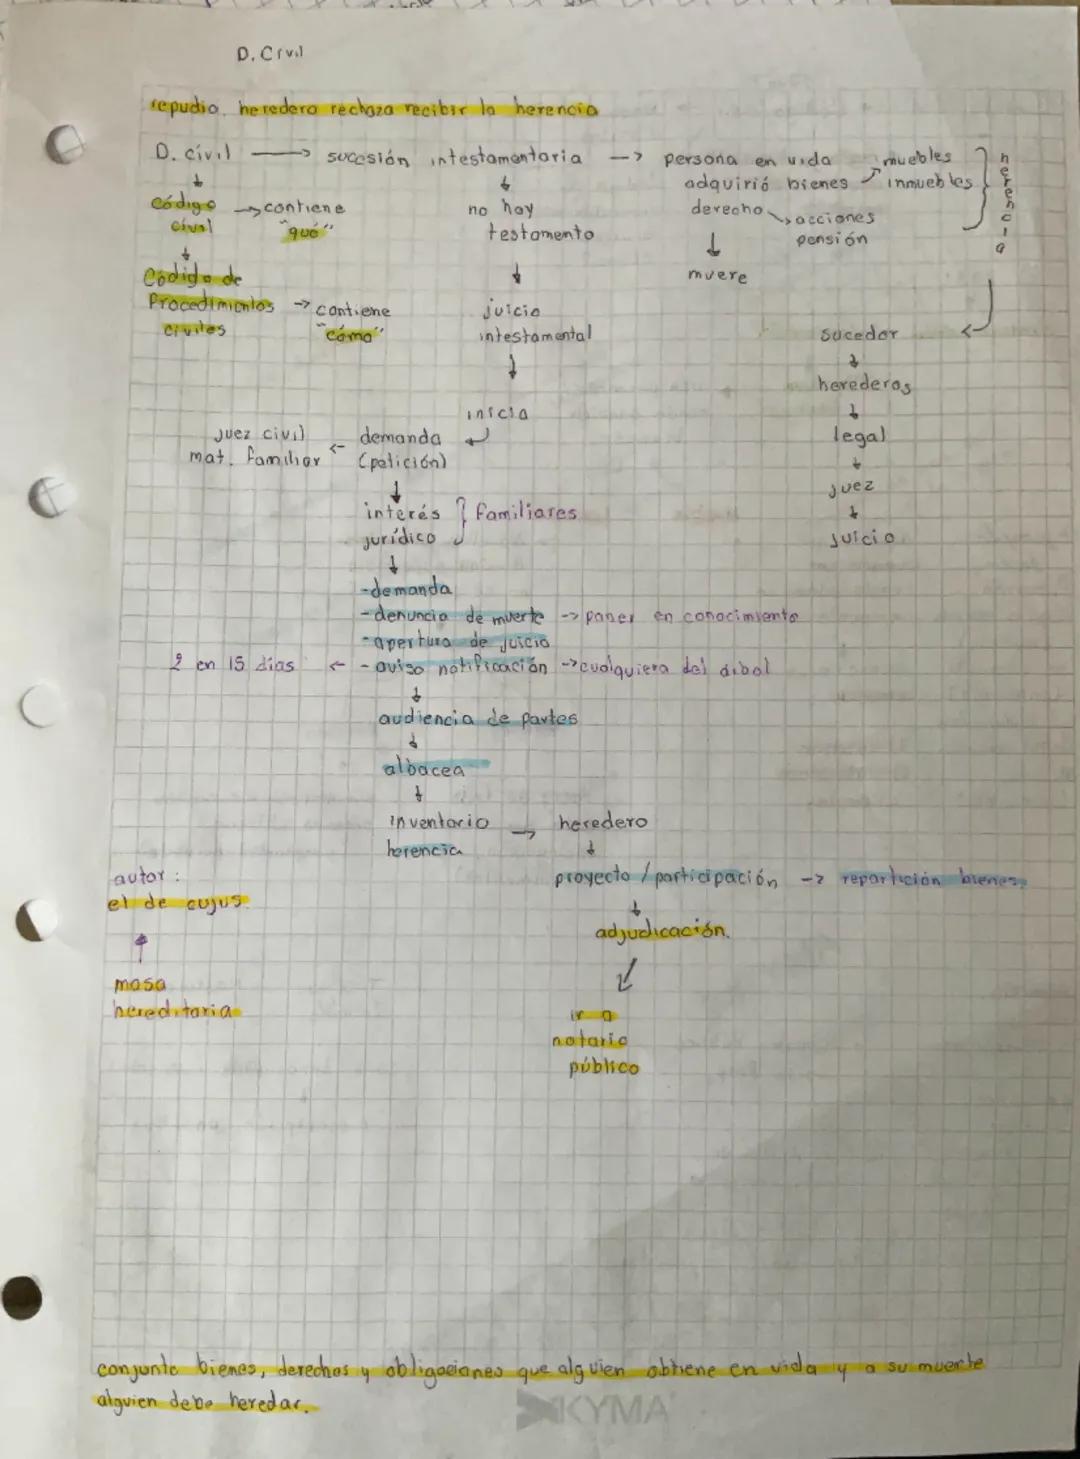 D. Civil
repudio. heredero rechaza recibir la herencia
D. civil → sucesión intestamentaria → persona en vida muebles
adquirió bienes → inmuebles
herencia
↓
Código → contiene
civil "qué"
↓
no hay
testamento
derecho → acciones
pensión
↓
muere
↓
Código de
Procedimientos → contiene
civiles "cómo"
↓
juicio
intestamental
↓
inicia
suceder
↓
herederos
↓
legal
↓
juez
↓
juicio
juez civil ← demanda
mat. familiar (petición)
↓
interés } familiares
jurídico
↓
-demanda
-denuncia de muerte → poner en conocimiento
-apertura de juicio
2 en 15 días ← -aviso notificación → cualquiera del árbol
↓
audiencia de partes
↓
albacea
↓
inventario → heredero
herencia ↓
autor: proyecto / participación → repartición bienes.
el de cujus. ↓
↑ adjudicación.
masa ↓
hereditaria ir a
notario
público
conjunto bienes, derechos y obligaciones que alguien obtiene en vida y a su muerte
alguien debe heredar.
KYMA